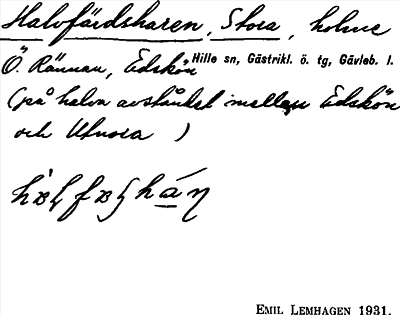 Halvfärdsharen, Stora, holme
Ö. Rännan, Edskön Hille sn, Gästrikl. ö. tg, Gävleb. l.
(på halva avståndet mellan Edskön
och Utnora )
EMIL LEMHAGEN 1931.